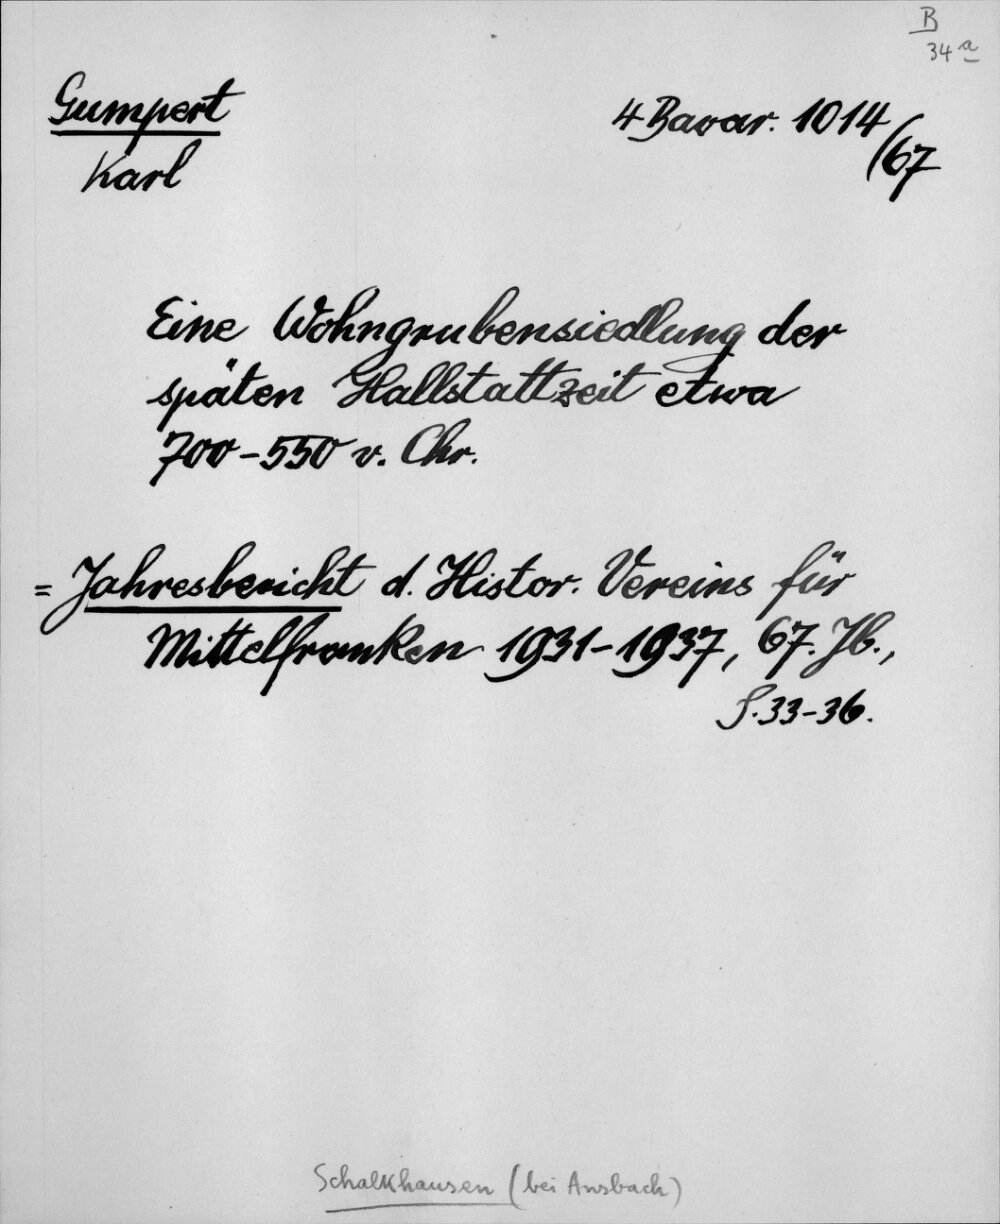 B
34 a
Gumpert
Karl
4 Bavar. 1014
(67
Eine Wohngrubensiedlung der
späten Hallstattzeit etwa
700-550 v. Chr.
= Jahresbericht d. Histor. Vereins für
Mittelfranken 1931-1937, 67. Jb.,
S. 33-36.
Schalkhausen (bei Ansbach)